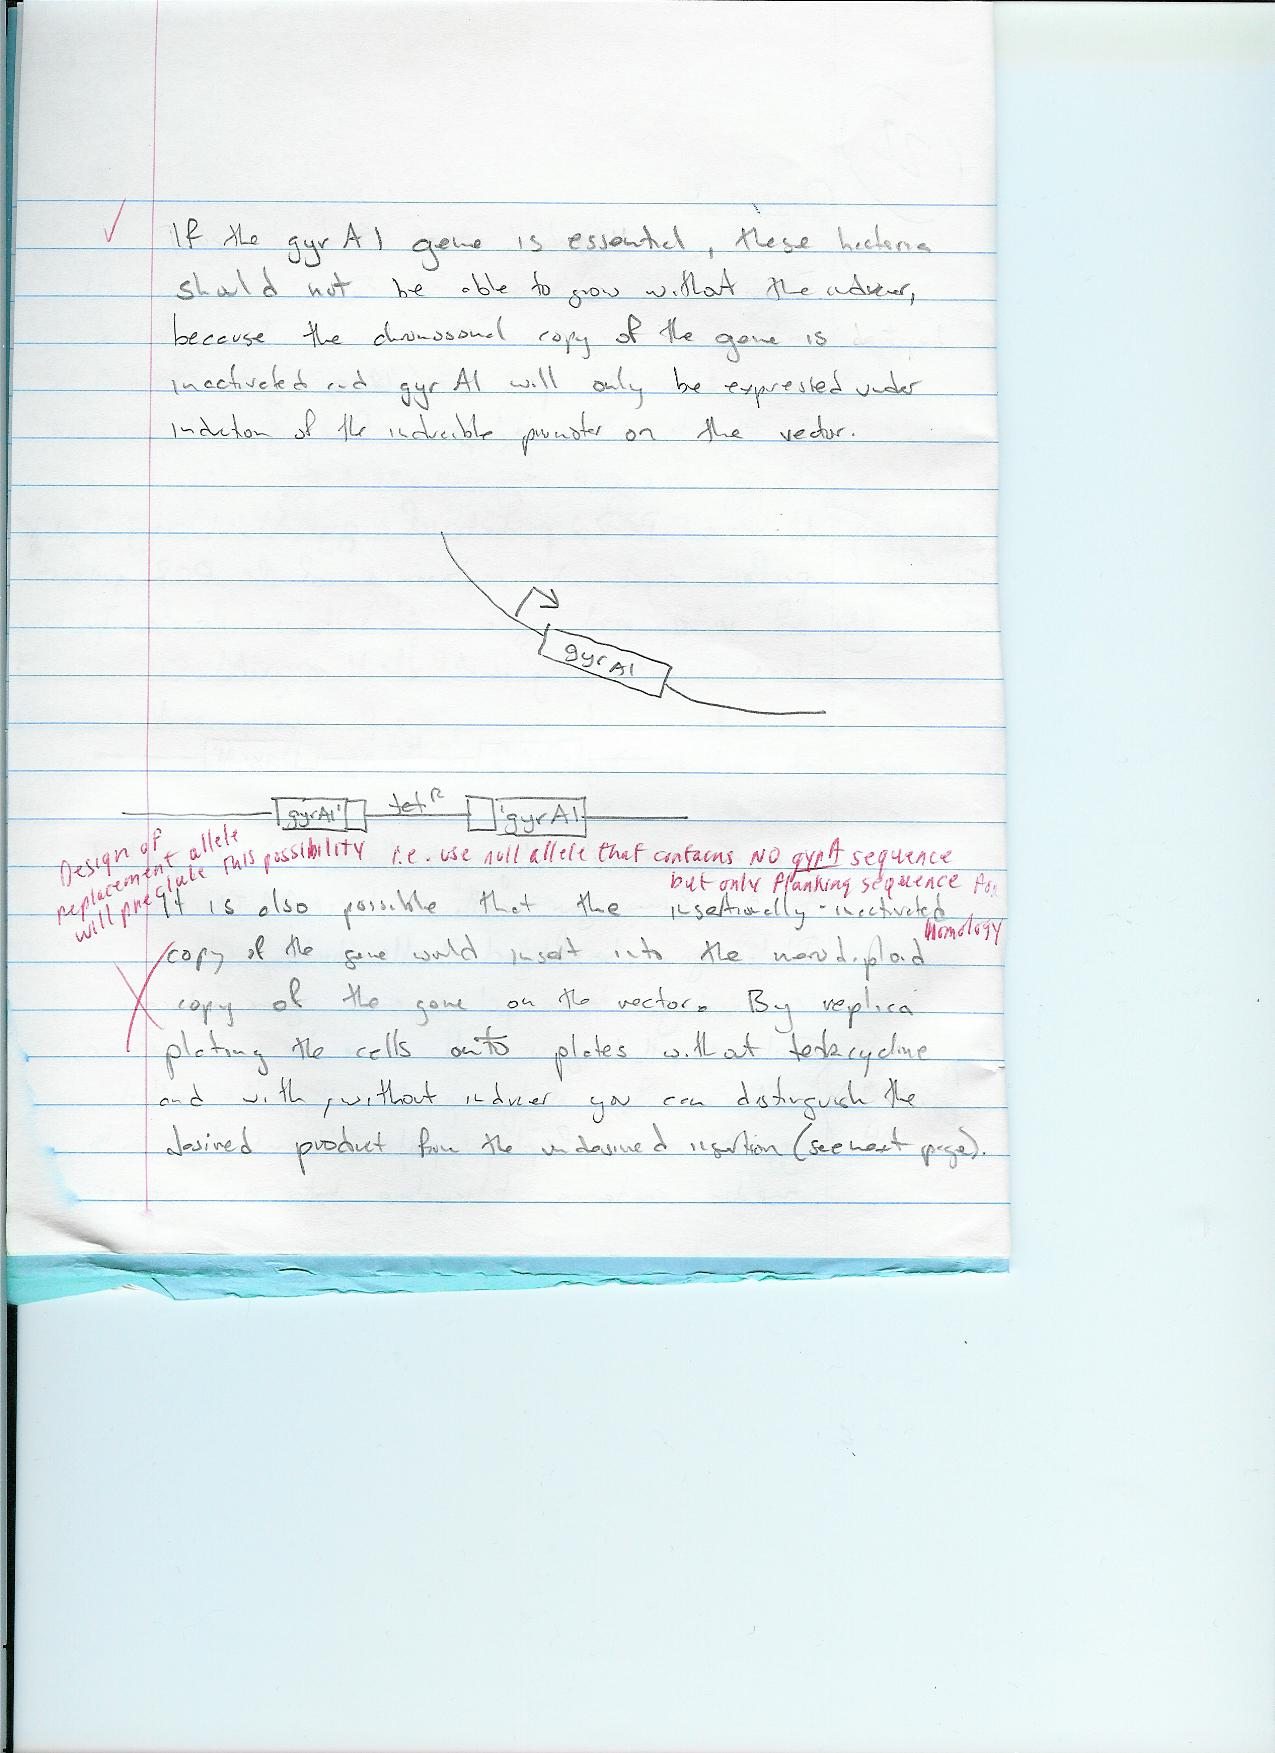 If the gyrA1 gene is essential, these bacteria
should not be able to grow without the inducer,
because the chromosonal copy of the gene is
inactivated and gyrA1 will only be expressed under
induction of the inducible promoter on the vector.
gyrA1
gyrA1' tetR 'gyrA1
Design of
replacement allele
will preclude this possibility i.e. use null allele that contains NO gyrA sequence
but only flanking sequence for
homology
It is also possible that the insertionally-inactivated
copy of the gene would insert into the merodiploid
copy of the gene on the vector. By replica
plating the cells onto plates without tetracycline
and with, without inducer you can distinguish the
desired product from the undesired insertion (see next page).